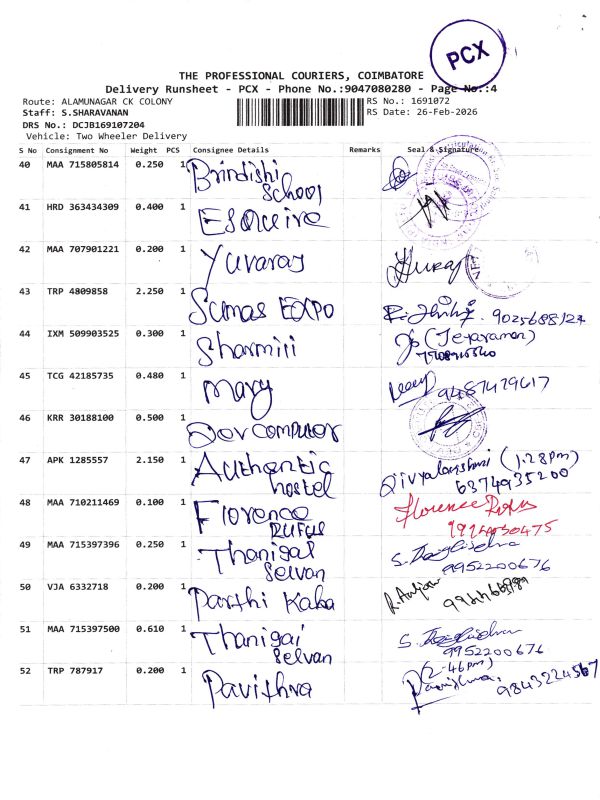 PCX
THE PROFESSIONAL COURIERS, COIMBATORE
Delivery Runsheet - PCX - Phone No.:9047080280 - Page No.:4
Route: ALAMUNAGAR CK COLONY
RS No.: 1691072
Staff: S.SHARAVANAN
RS Date: 26-Feb-2026
DRS No.: DCJB169107204
Vehicle: Two Wheeler Delivery
S No Consignment No Weight PCS Consignee Details Remarks Seal & Signature
40 MAA 715805814 0.250 1 Brindishi
School
41 HRD 363434309 0.400 1 Esquire
42 MAA 707901221 0.200 1 Yuvaraj
43 TRP 4809858 2.250 1 Sumas Expo 9025688124
44 IXM 509903525 0.300 1 Sharmili (Jeyaraman)
45 TCG 42185735 0.480 1 Mary 9487479617
46 KRR 30188100 0.500 1 computer
47 APK 1285557 2.150 1 Authentic (1.28pm)
hostel 6374935200
48 MAA 710211469 0.100 1 Florence Florence
Rufus
49 MAA 715397396 0.250 1 Thanigai
Selvan 9952200676
50 VJA 6332718 0.200 1 Parthi Kaba
51 MAA 715397500 0.610 1 Thanigai
Selvan 9952200676
52 TRP 787917 0.200 1 Pavithra (2-46pm)
9843224567